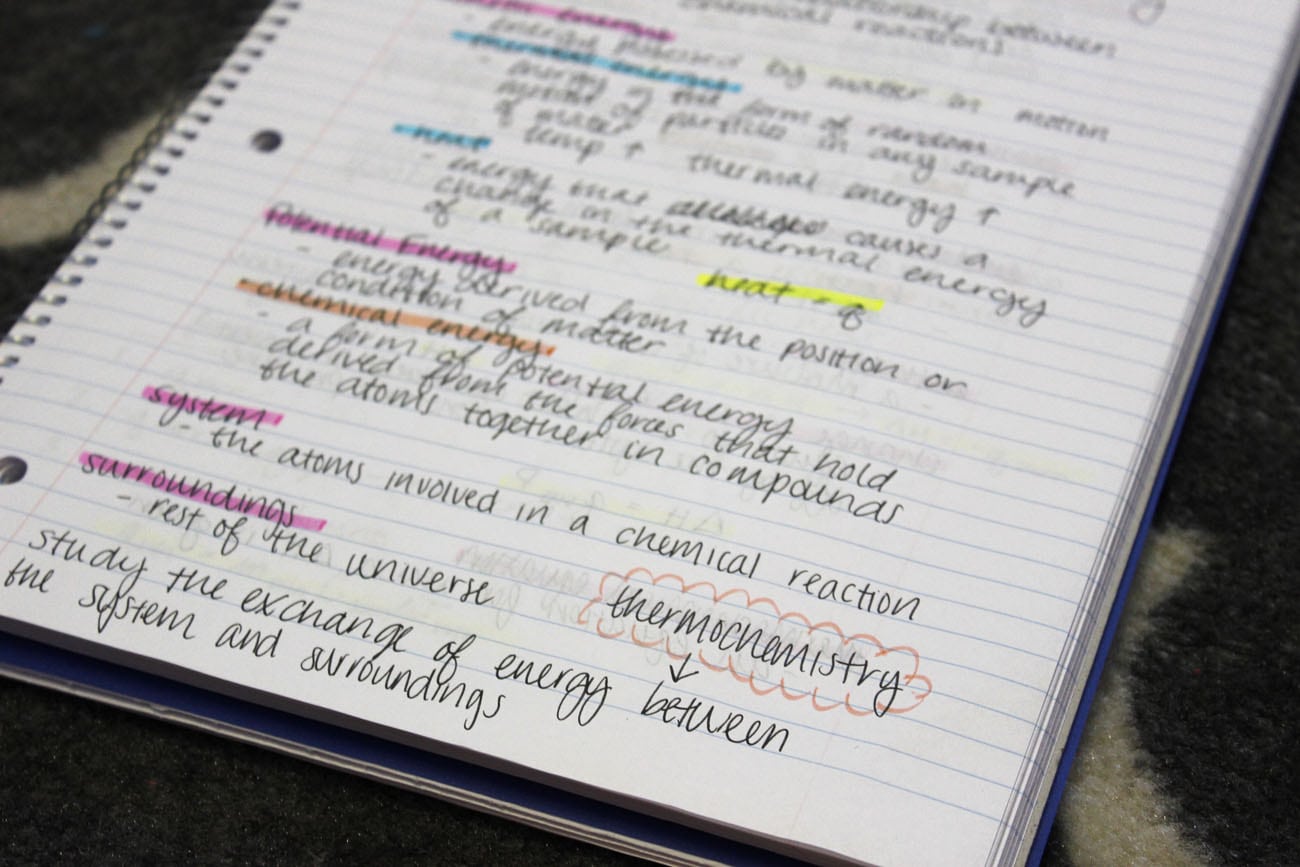 relationship between
chemical reactions
energy
- energy possessed by matter in motion
thermal energy
- energy in the form of random
motion of particles in any sample
of matter
temp ↑ thermal energy ↑
heat
- energy that causes a
change in the thermal energy
of a sample
heat = q
Potential Energy
- energy derived from the position or
condition of matter
chemical energy
- a form of potential energy
derived from the forces that hold
the atoms together in compounds
system
- the atoms involved in a chemical reaction
surroundings
- rest of the universe
thermochemistry
↓
study the exchange of energy between
the system and surroundings